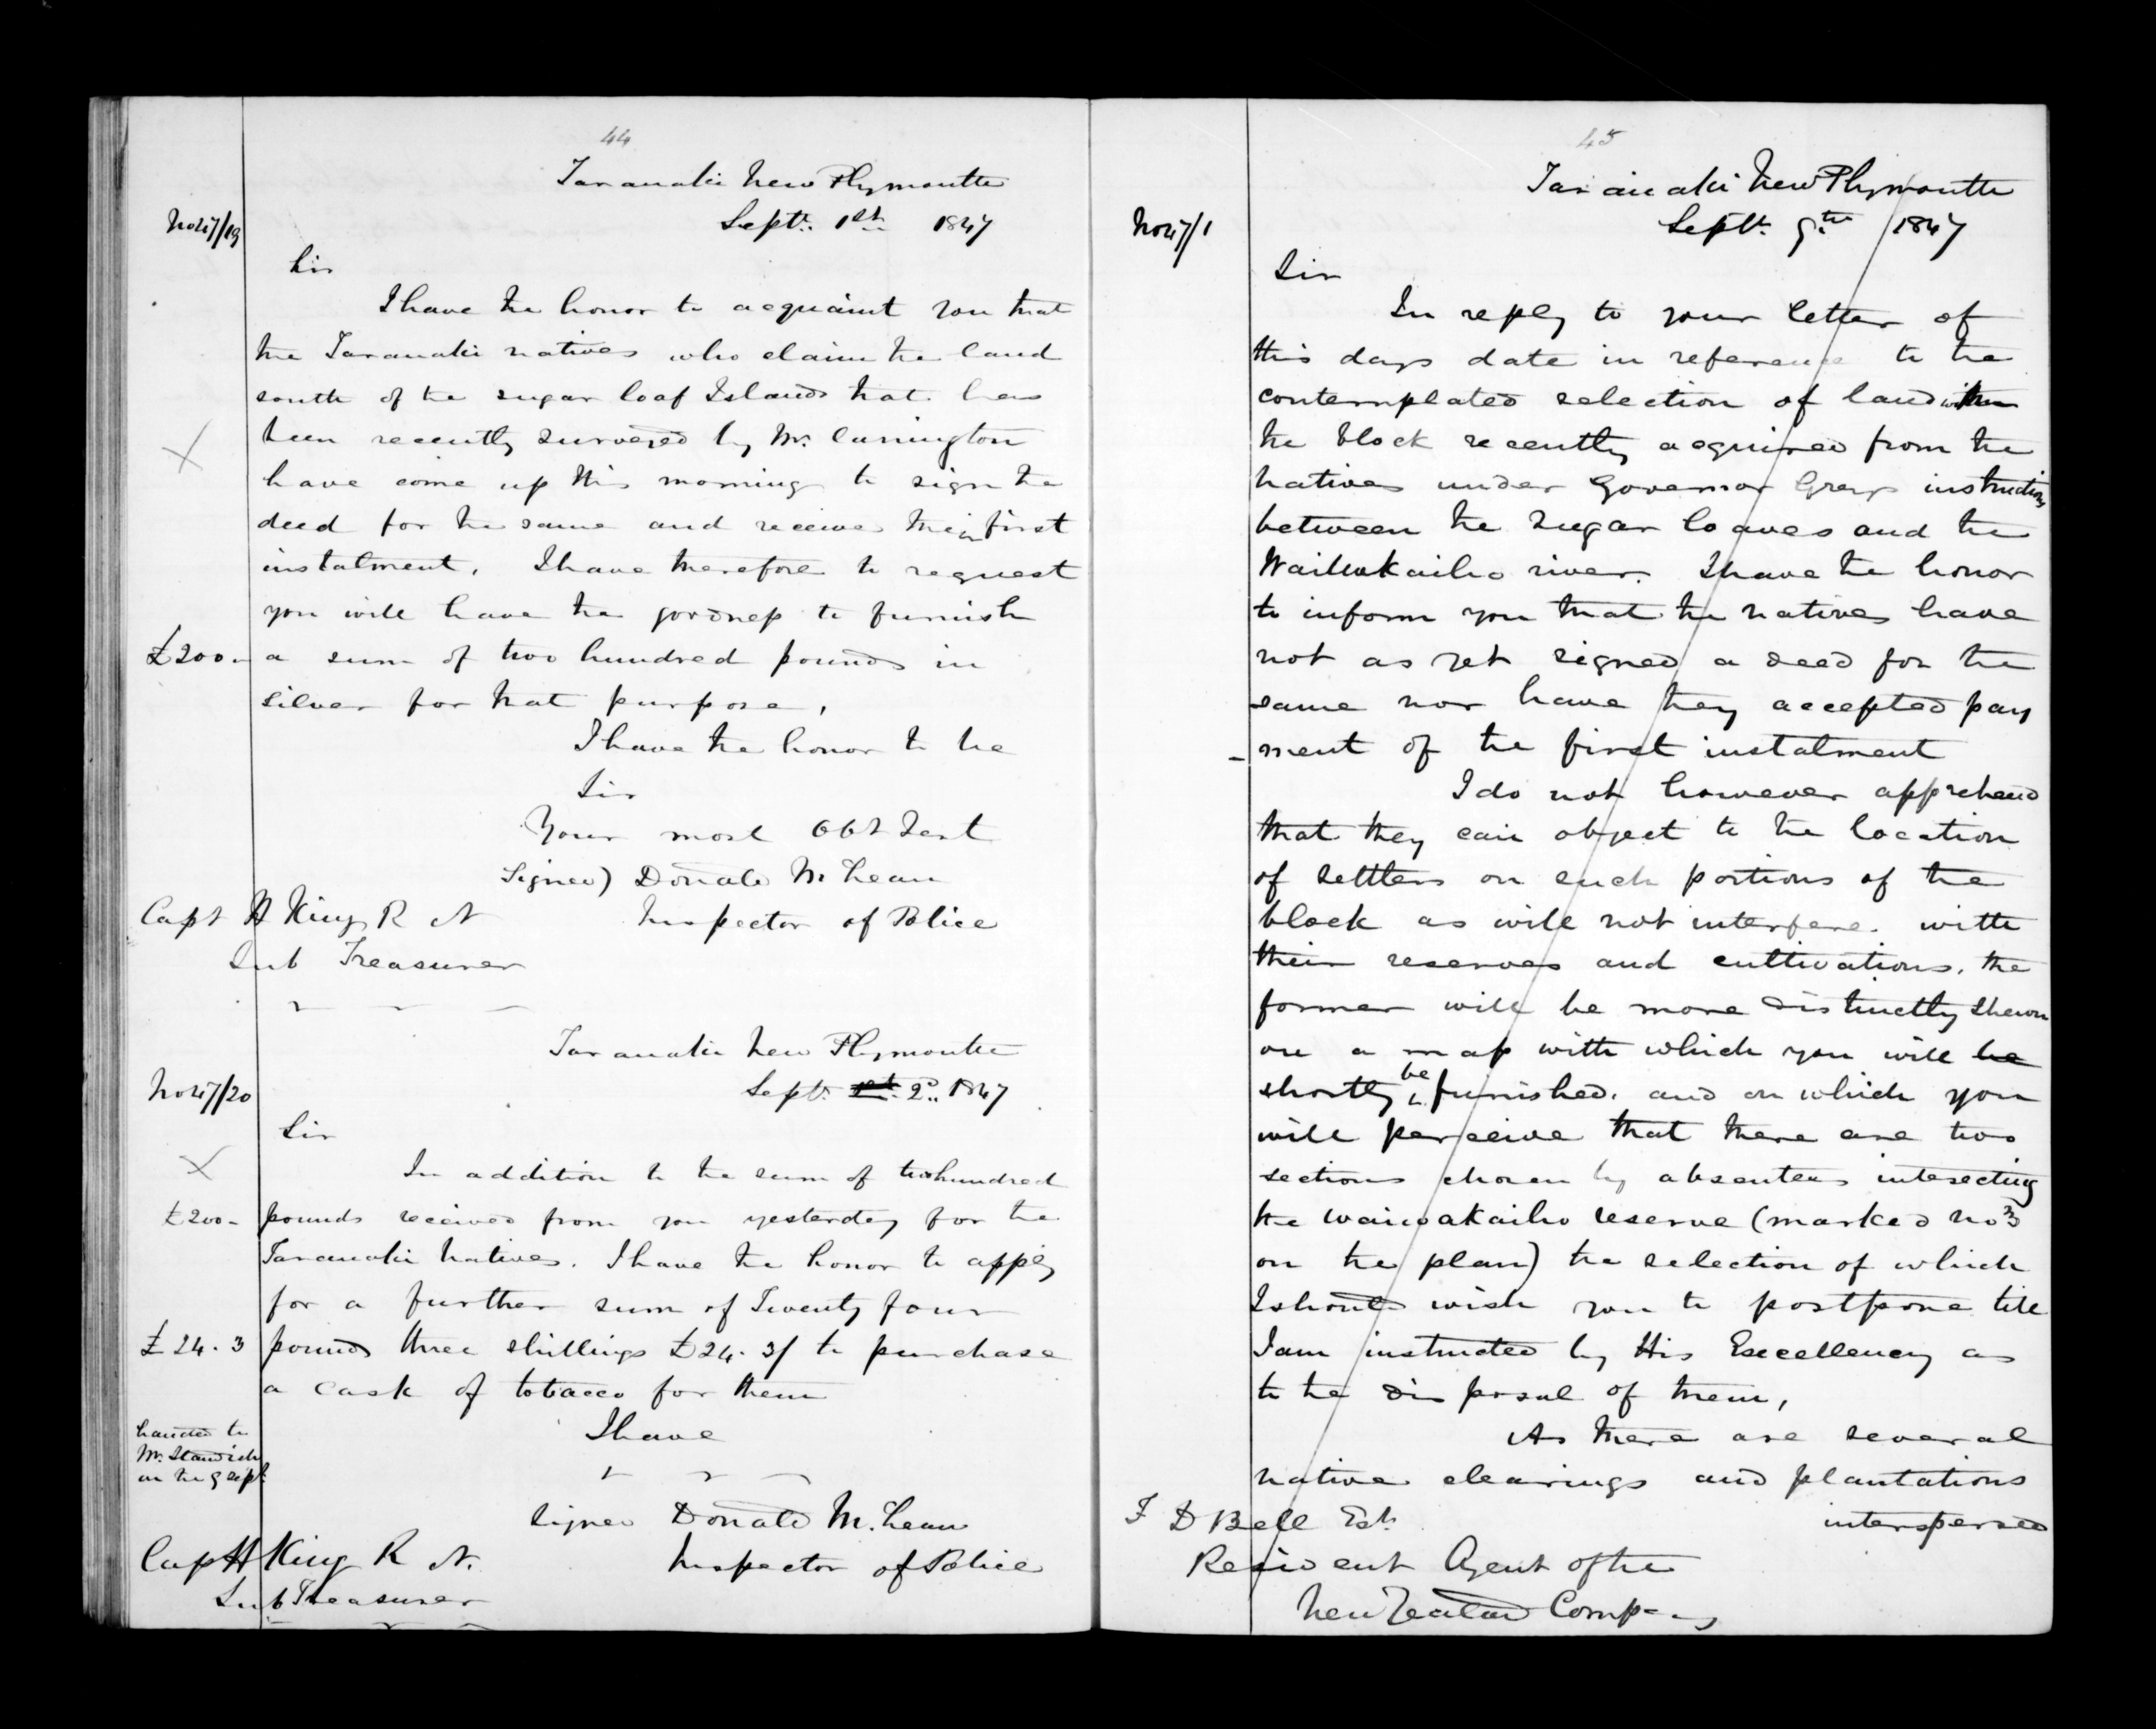 44
Taranaki New Plymouth
No 47/19
Septr. 1st 1847
Sir
I have the honor to acquaint you that
the Taranaki natives who claim the land
south of the sugar loaf Islands that has
been recently surveyed by Mr. Carrington
have come up this morning to sign the
deed for the same and receive their first
instalment. I have therefore to request
you will have the goodness to furnish
£200 - a sum of two hundred pounds in
silver for that purpose,
I have the honor to be
Sir
Your most Obt Sert
Signed) Donald McLean
Capt H King R N Inspector of Police
Sub Treasurer
Taranaki New Plymouth
No 47/20
Septr. 1st. 2d. 1847
Sir
In addition to the sum of two hundred
£200 - pounds received from you yesterday for the
Taranaki Natives. I have the honor to apply
for a further sum of Twenty four
£24. 3 pounds three shillings £24. 3/ to purchase
a cask of tobacco for them
handed to
Mr. Standish
on the 9 Sept.
I have
Signed Donald McLean
Capt H King R N. Inspector of Police
Sub Treasurer
45
Taranaki New Plymouth
No 47/1
Septr. 9th 1847
Sir
In reply to your letter of
this days date in reference to the
contemplated selection of land within
the block recently acquired from the
natives under Governor Greys instructions
between the Sugar loaves and the
Waiwakaiho river. I have the honor
to inform you that the natives have
not as yet signed a deed for the
same nor have they accepted pay
- ment of the first instalment
I do not however apprehend
that they can object to the location
of settlers on such portions of the
block as will not interfere with
their reserves and cultivations. the
former will be more distinctly shewn
on a map with which you will be
shortly be furnished. and on which you
will perceive that there are two
sections chosen by absentees intersecting
the waiwakaiho reserve (marked No 3
on the plan) the selection of which
I should wish you to postpone till
I am instructed by His Excellency as
to the disposal of them,
As there are several
native clearings and plantations
interspersed
F D Bell Esqr.
Resident Agent of the
New Zealand Company